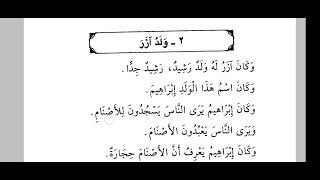 ٢ - وَلَدُ آزَرَ
وَكَانَ آزَرُ لَهُ وَلَدٌ رَشِيدٌ، رَشِيدٌ جِدًّا.
وَكَانَ اسْمُ هَذَا الْوَلَدِ إِبْرَاهِيمَ.
وَكَانَ إِبْرَاهِيمُ يَرَى النَّاسَ يَسْجُدُونَ لِلأَصْنَامِ.
وَيَرَى النَّاسَ يَعْبُدُونَ الأَصْنَامَ.
وَكَانَ إِبْرَاهِيمُ يَعْرِفُ أَنَّ الأَصْنَامَ حِجَارَةٌ.